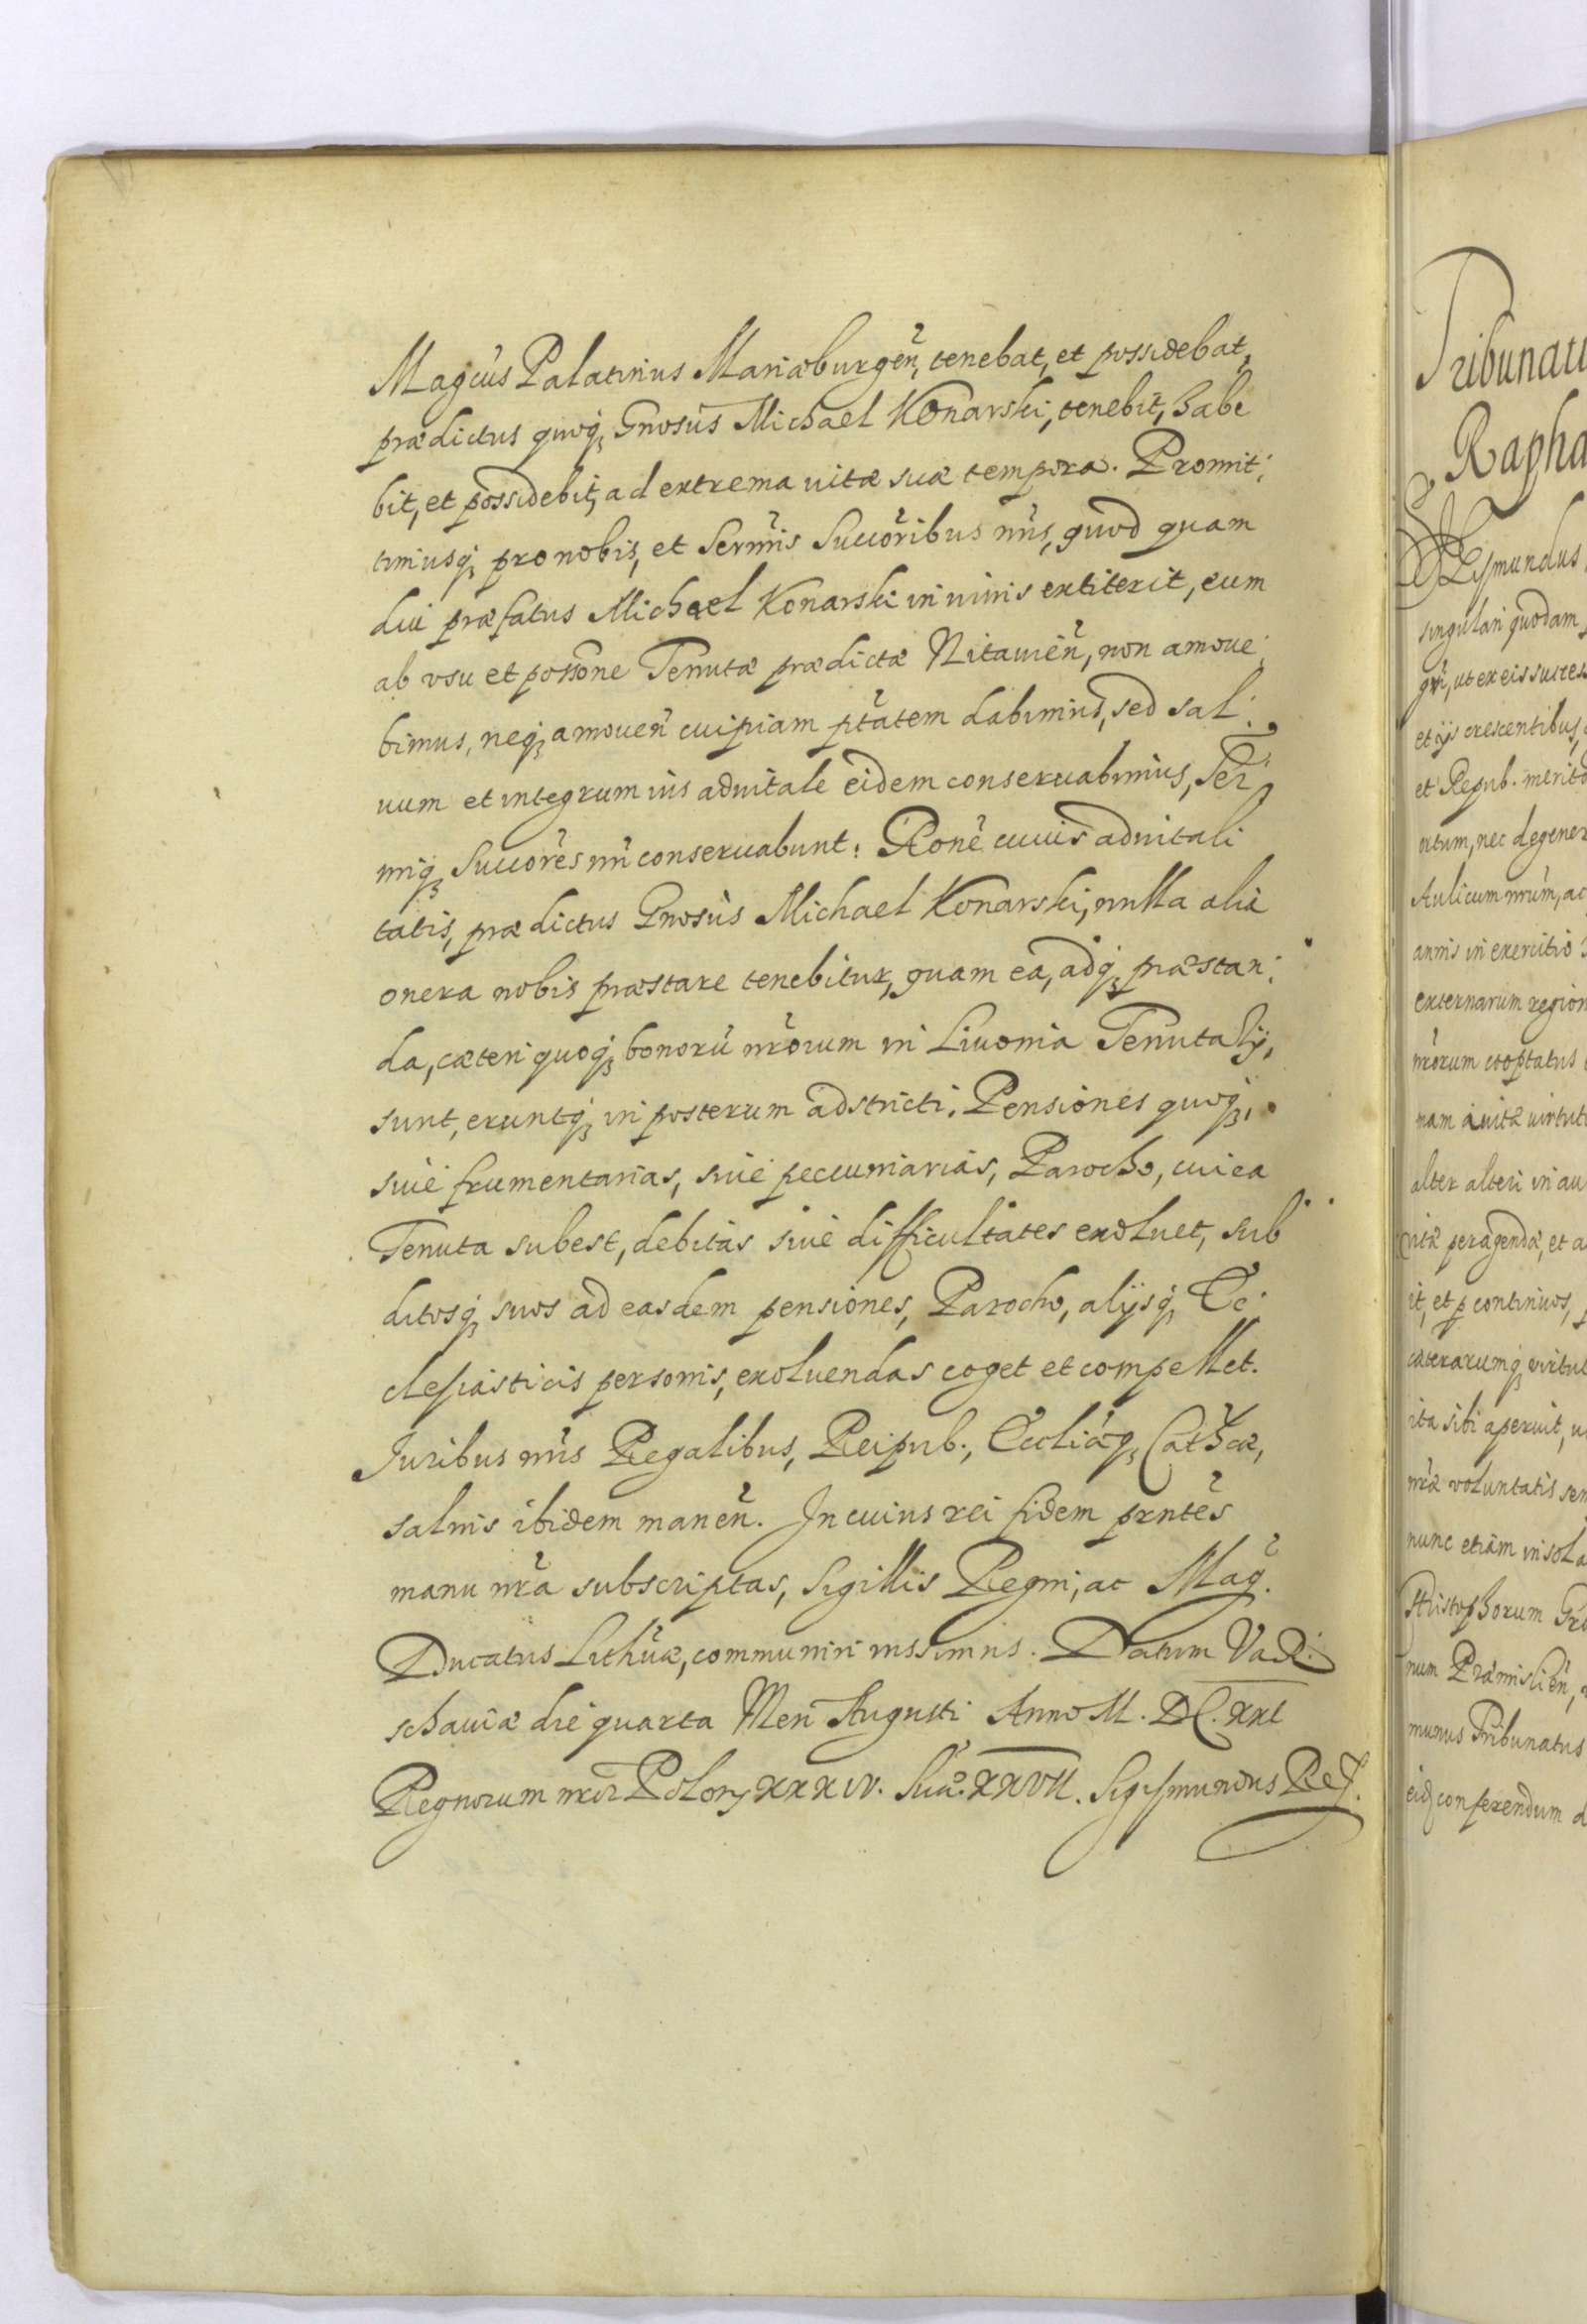 Magcûs Palatinus Mariæburgeñ, tenebat, et possidebat,
prædictus quoq; Gnosûs Michael Konarski, tenebit, habe
bit, et possidebit, ad extrema uitæ suæ tempora. Promit:
timusq; pro nobis, et Sermĩs Succoribus nrĩs, quod quam
diu præfatus Michael Konarski in uiuis extiterit, eum
ab vsu et possõne Tenutæ prædictæ Nitauieñ, non amoue:
bimus, neq; amouen̄ cuipiam ptãtem dabimus, sed sal:
uum et integrum ius aduitale eidem conseruabimus, Ser:
miq; Succorẽs nrĩ conseruabunt: Ronẽ cuius aduitali
tatis, prædictus Gnosûs Michael Konarski, nulla alia
onera nobis præstare tenebitur, quam ea, ad q; præstan:
da, cæteri quoq; bonorũ nrõrum in Liuonia Tenutarij,
sunt, eruntq; in posterum adstricti. Pensiones quoq;,
siue frumentarias, siue pecuniarias, Parocho, cui ea
Tenuta subest, debitas siue difficultates exoluet, sub
ditosq; suos ad easdem pensiones, Parocho, alijsq; Ec:
clesiasticis personis, exoluendas coget et compellet.
Juribus nrĩs Regalibus, Reipub., Eccliæq; Cathcæ,
saluis ibidem maneñ. In cuius rei fidem prntẽs
manu nrã subscriptas, Sigillis Regni, ac Mag.
Ducatus Lithuæ, communiri iussimus. Datum Var:
schauiæ die quarta Men̄ Augusti Anno M. DC. XXI
Regnorum nror̃ Poloniæ XXXIV. Suæ. XXVII. Sigismundus Rex.
Tribunatu
Rapha
singulari quodam
et ijs crescentibus,
et Repub. merito
ortum, nec degener
Aulicum nrũm, ac
annis in exercitio
externarum region
nrõrum cooptatus
nam auitæ uirtut
alter alteri in au
uitæ peragendæ, et a
it, et p continuos,
cæterarumq; uirtut
ita sibi aperuit, u
nræ voluntatis
nunc etiam in sola
num Præmislieñ,
munus Tribunatus
conferendum d